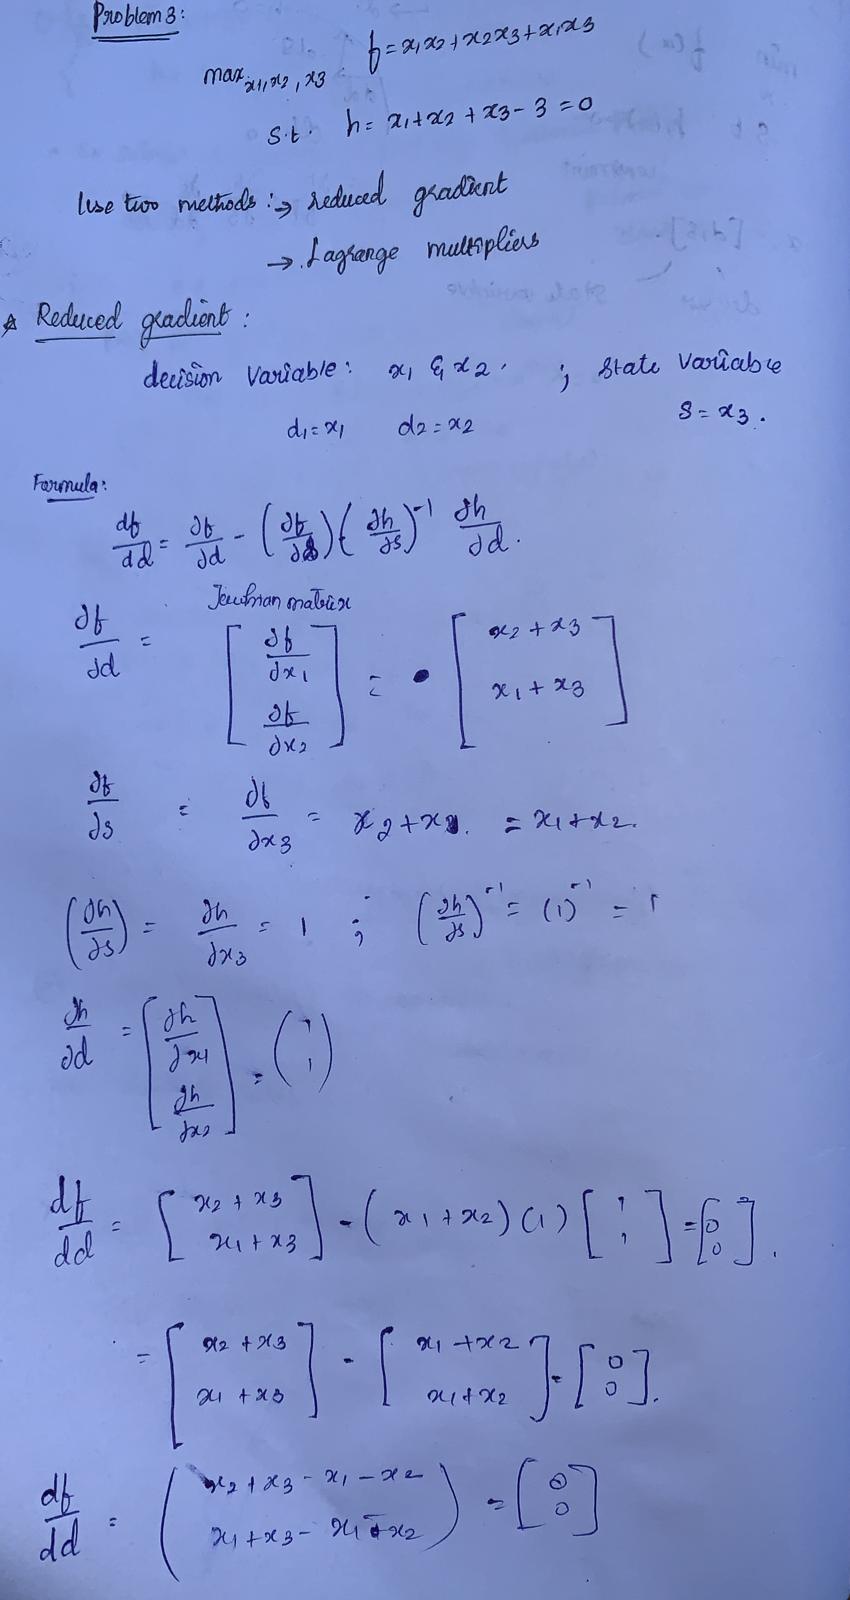 Problem 3:
max x1, x2, x3 f = x1x2 + x2x3 + x1x3
s.t. h = x1 + x2 + x3 - 3 = 0
Use two methods :→ reduced gradient
→ Lagrange multipliers
Reduced gradient :
decision variable : x1 & x2 . ; state variable
d1 = x1 d2 = x2 s = x3 .
Formula:
df/dd = ∂f/∂d - (∂f/∂s) (∂h/∂s)^-1 ∂h/∂d .
∂f/∂d = [∂f/∂x1 ; ∂f/∂x2] = [x2 + x3 ; x1 + x3]
∂f/∂s = ∂f/∂x3 = x2 + x1. = x1 + x2.
(∂h/∂s) = ∂h/∂x3 = 1 ; (∂h/∂s)^-1 = (1)^-1 = 1
∂h/∂d = [∂h/∂x1 ; ∂h/∂x2] = (1 ; 1)
df/dd = [x2 + x3 ; x1 + x3] - (x1 + x2) (1) [1 ; 1] = [0 ; 0] .
= [x2 + x3 ; x1 + x3] - [x1 + x2 ; x1 + x2] = [0 ; 0] .
df/dd = (x2 + x3 - x1 - x2 ; x1 + x3 - x1 - x2) = [0 ; 0]